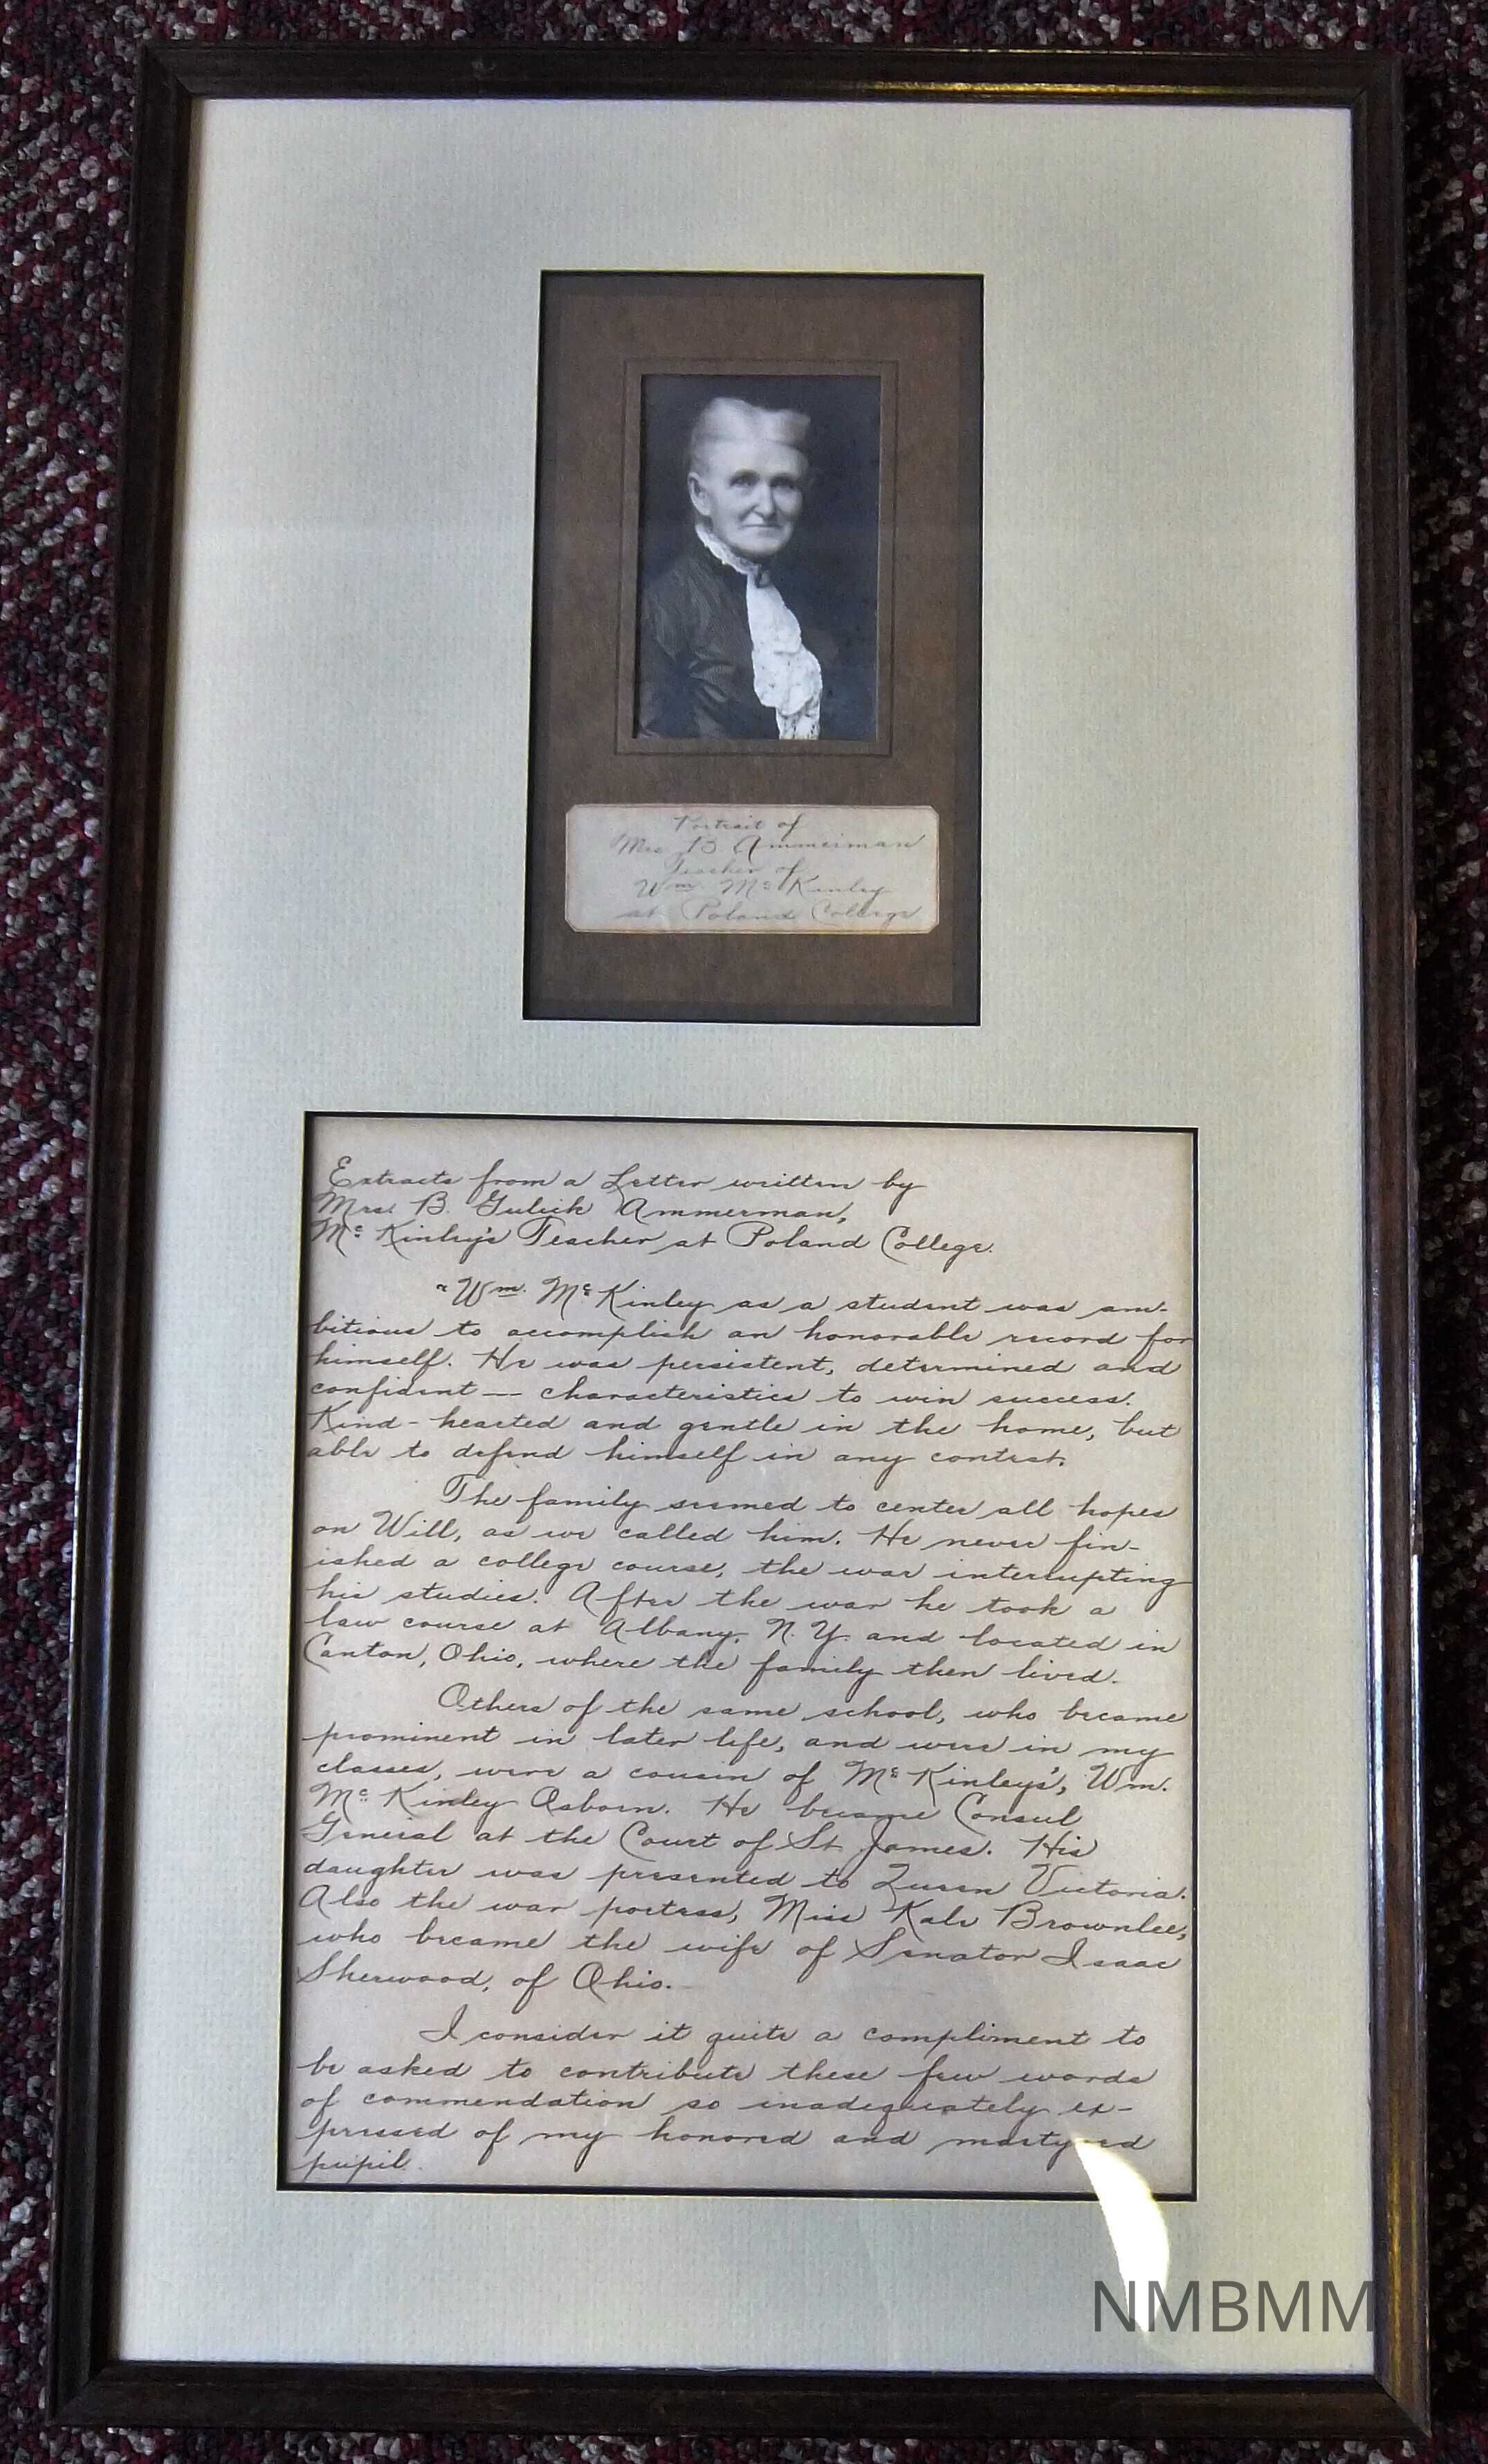 Portrait of
Mrs B Ammerman
Teacher of
Wm. Mc Kinley
at Poland College
Extracts from a Letter written by
Mrs. B. Gulick Ammerman,
Mc Kinley's Teacher at Poland College.
"Wm. Mc Kinley as a student was am-
bitious to accomplish an honorable record for
himself. He was persistent, determined and
confident — characteristics to win success.
Kind-hearted and gentle in the home, but
able to defend himself in any contest.
The family seemed to center all hopes
on Will, as we called him. He never fin-
ished a college course, the war interrupting
his studies. After the war he took a
law course at Albany, N. Y. and located in
Canton, Ohio, where the family then lived.
Others of the same school, who became
prominent in later life, and were in my
classes, were a cousin of Mc Kinley's, Wm.
Mc Kinley Osborn. He became Consul
General at the Court of St James. His
daughter was presented to Queen Victoria.
Also the war poetess, Miss Kate Brownlee,
who became the wife of Senator Isaac
Sherwood, of Ohio.
I consider it quite a compliment to
be asked to contribute these few words
of commendation so inadequately ex-
pressed of my honored and martyred
pupil.
NMBMM